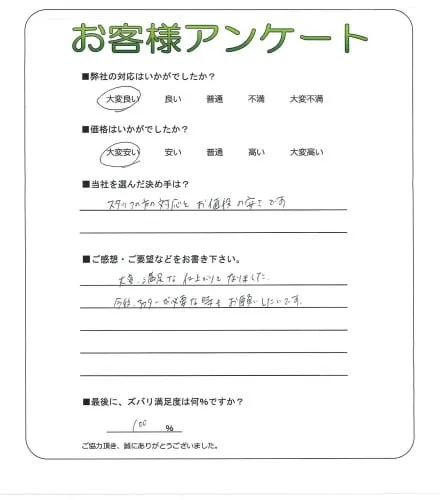 お客様アンケート
■弊社の対応はいかがでしたか?
大変良い 良い 普通 不満 大変不満
■価格はいかがでしたか?
大変安い 安い 普通 高い 大変高い
■当社を選んだ決め手は?
スタッフの方の対応と お価格の安さです
■ご感想・ご要望などをお書き下さい。
大変、満足な仕上がりと なりました。
が必要な時も お願いしたいです。
■最後に、ズバリ満足度は何%ですか?
100 %
ご協力頂き、誠にありがとうございました。